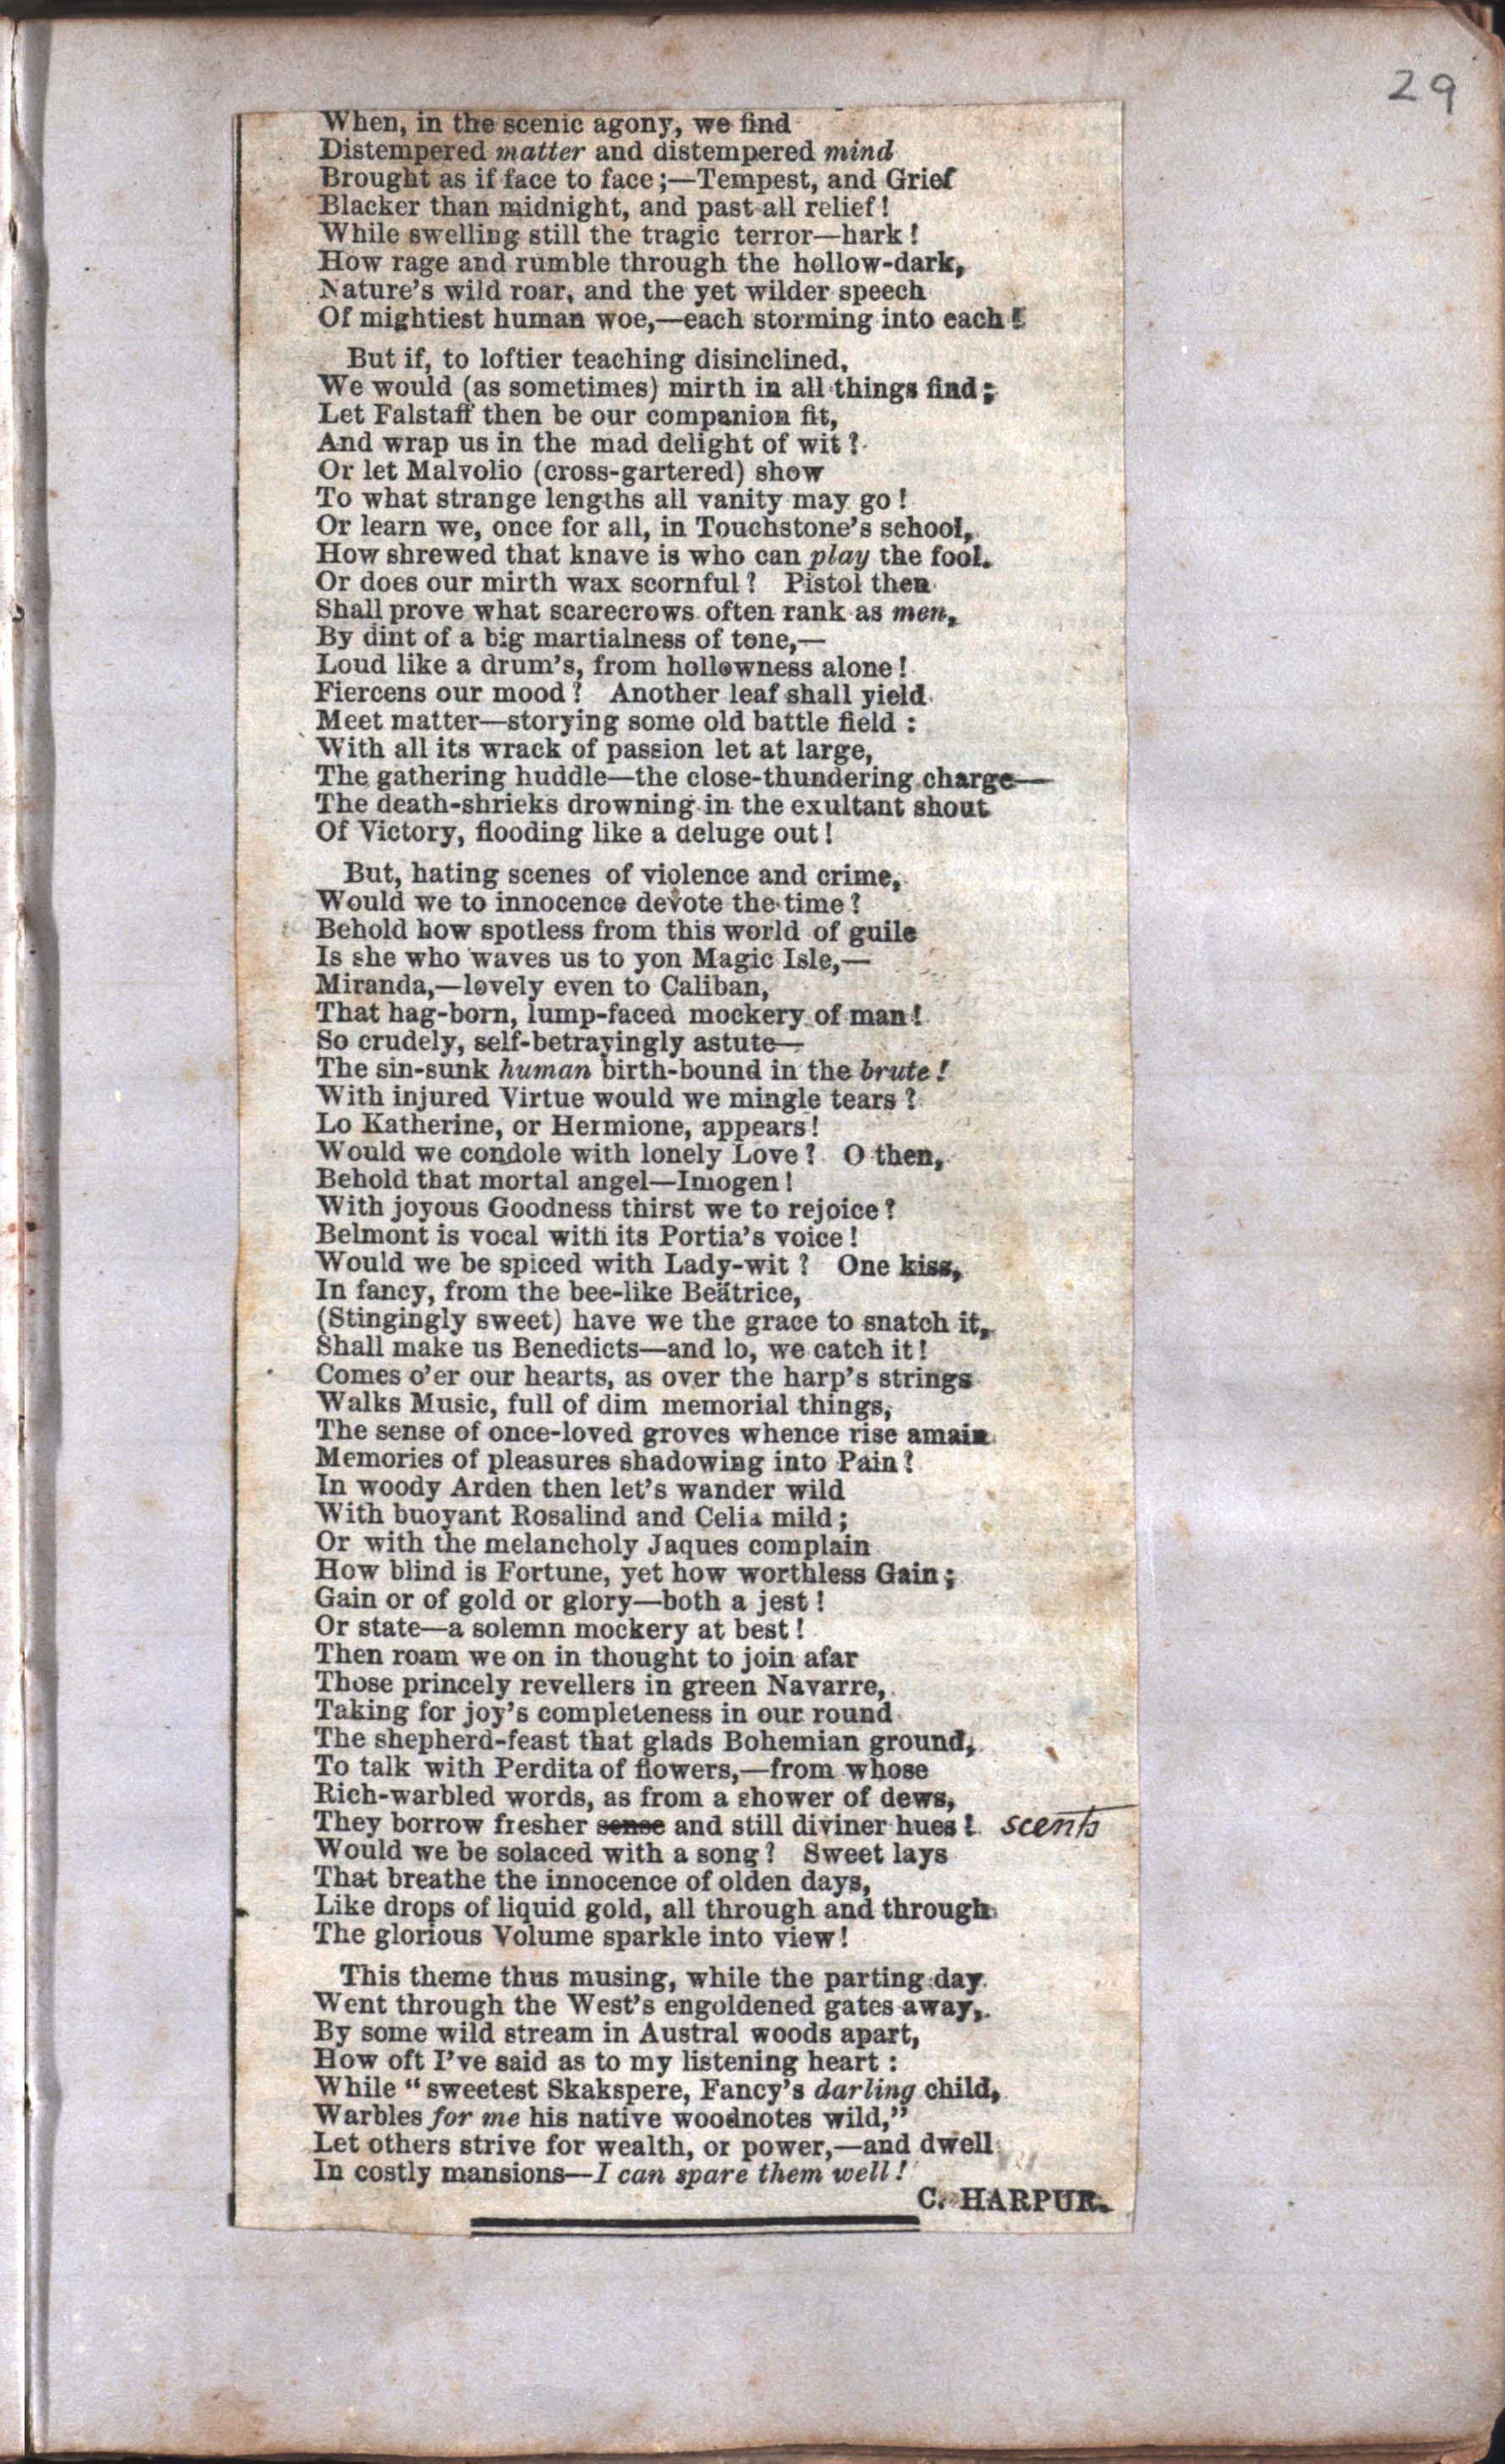 29
When, in the scenic agony, we find
Distempered matter and distempered mind
Brought as if face to face;—Tempest, and Grief
Blacker than midnight, and past all relief!
While swelling still the tragic terror—hark!
How rage and rumble through the hollow-dark,
Nature's wild roar, and the yet wilder speech
Of mightiest human woe,—each storming into each!
But if, to loftier teaching disinclined,
We would (as sometimes) mirth in all things find;
Let Falstaff then be our companion fit,
And wrap us in the mad delight of wit?
Or let Malvolio (cross-gartered) show
To what strange lengths all vanity may go!
Or learn we, once for all, in Touchstone's school,
How shrewed that knave is who can play the fool.
Or does our mirth wax scornful? Pistol then
Shall prove what scarecrows often rank as men,
By dint of a big martialness of tone,—
Loud like a drum's, from hollowness alone!
Fiercens our mood? Another leaf shall yield
Meet matter—storying some old battle field:
With all its wrack of passion let at large,
The gathering huddle—the close-thundering charge—
The death-shrieks drowning in the exultant shout
Of Victory, flooding like a deluge out!
But, hating scenes of violence and crime,
Would we to innocence devote the time?
Behold how spotless from this world of guile
Is she who waves us to yon Magic Isle,—
Miranda,—lovely even to Caliban,
That hag-born, lump-faced mockery of man!
So crudely, self-betrayingly astute—
The sin-sunk human birth-bound in the brute!
With injured Virtue would we mingle tears?
Lo Katherine, or Hermione, appears!
Would we condole with lonely Love? O then,
Behold that mortal angel—Imogen!
With joyous Goodness thirst we to rejoice?
Belmont is vocal with its Portia's voice!
Would we be spiced with Lady-wit? One kiss,
In fancy, from the bee-like Beätrice,
(Stingingly sweet) have we the grace to snatch it,
Shall make us Benedicts—and lo, we catch it!
Comes o'er our hearts, as over the harp's strings
Walks Music, full of dim memorial things,
The sense of once-loved groves whence rise amain
Memories of pleasures shadowing into Pain?
In woody Arden then let's wander wild
With buoyant Rosalind and Celia mild;
Or with the melancholy Jaques complain
How blind is Fortune, yet how worthless Gain;
Gain or of gold or glory—both a jest!
Or state—a solemn mockery at best!
Then roam we on in thought to join afar
Those princely revellers in green Navarre,
Taking for joy's completeness in our round
The shepherd-feast that glads Bohemian ground,
To talk with Perdita of flowers,—from whose
Rich-warbled words, as from a shower of dews,
They borrow fresher sense and still diviner hues! scents
Would we be solaced with a song? Sweet lays
That breathe the innocence of olden days,
Like drops of liquid gold, all through and through
The glorious Volume sparkle into view!
This theme thus musing, while the parting day
Went through the West's engoldened gates away,
By some wild stream in Austral woods apart,
How oft I've said as to my listening heart:
While "sweetest Skakspere, Fancy's darling child,
Warbles for me his native woodnotes wild,"
Let others strive for wealth, or power,—and dwell
In costly mansions—I can spare them well!
C. HARPUR.